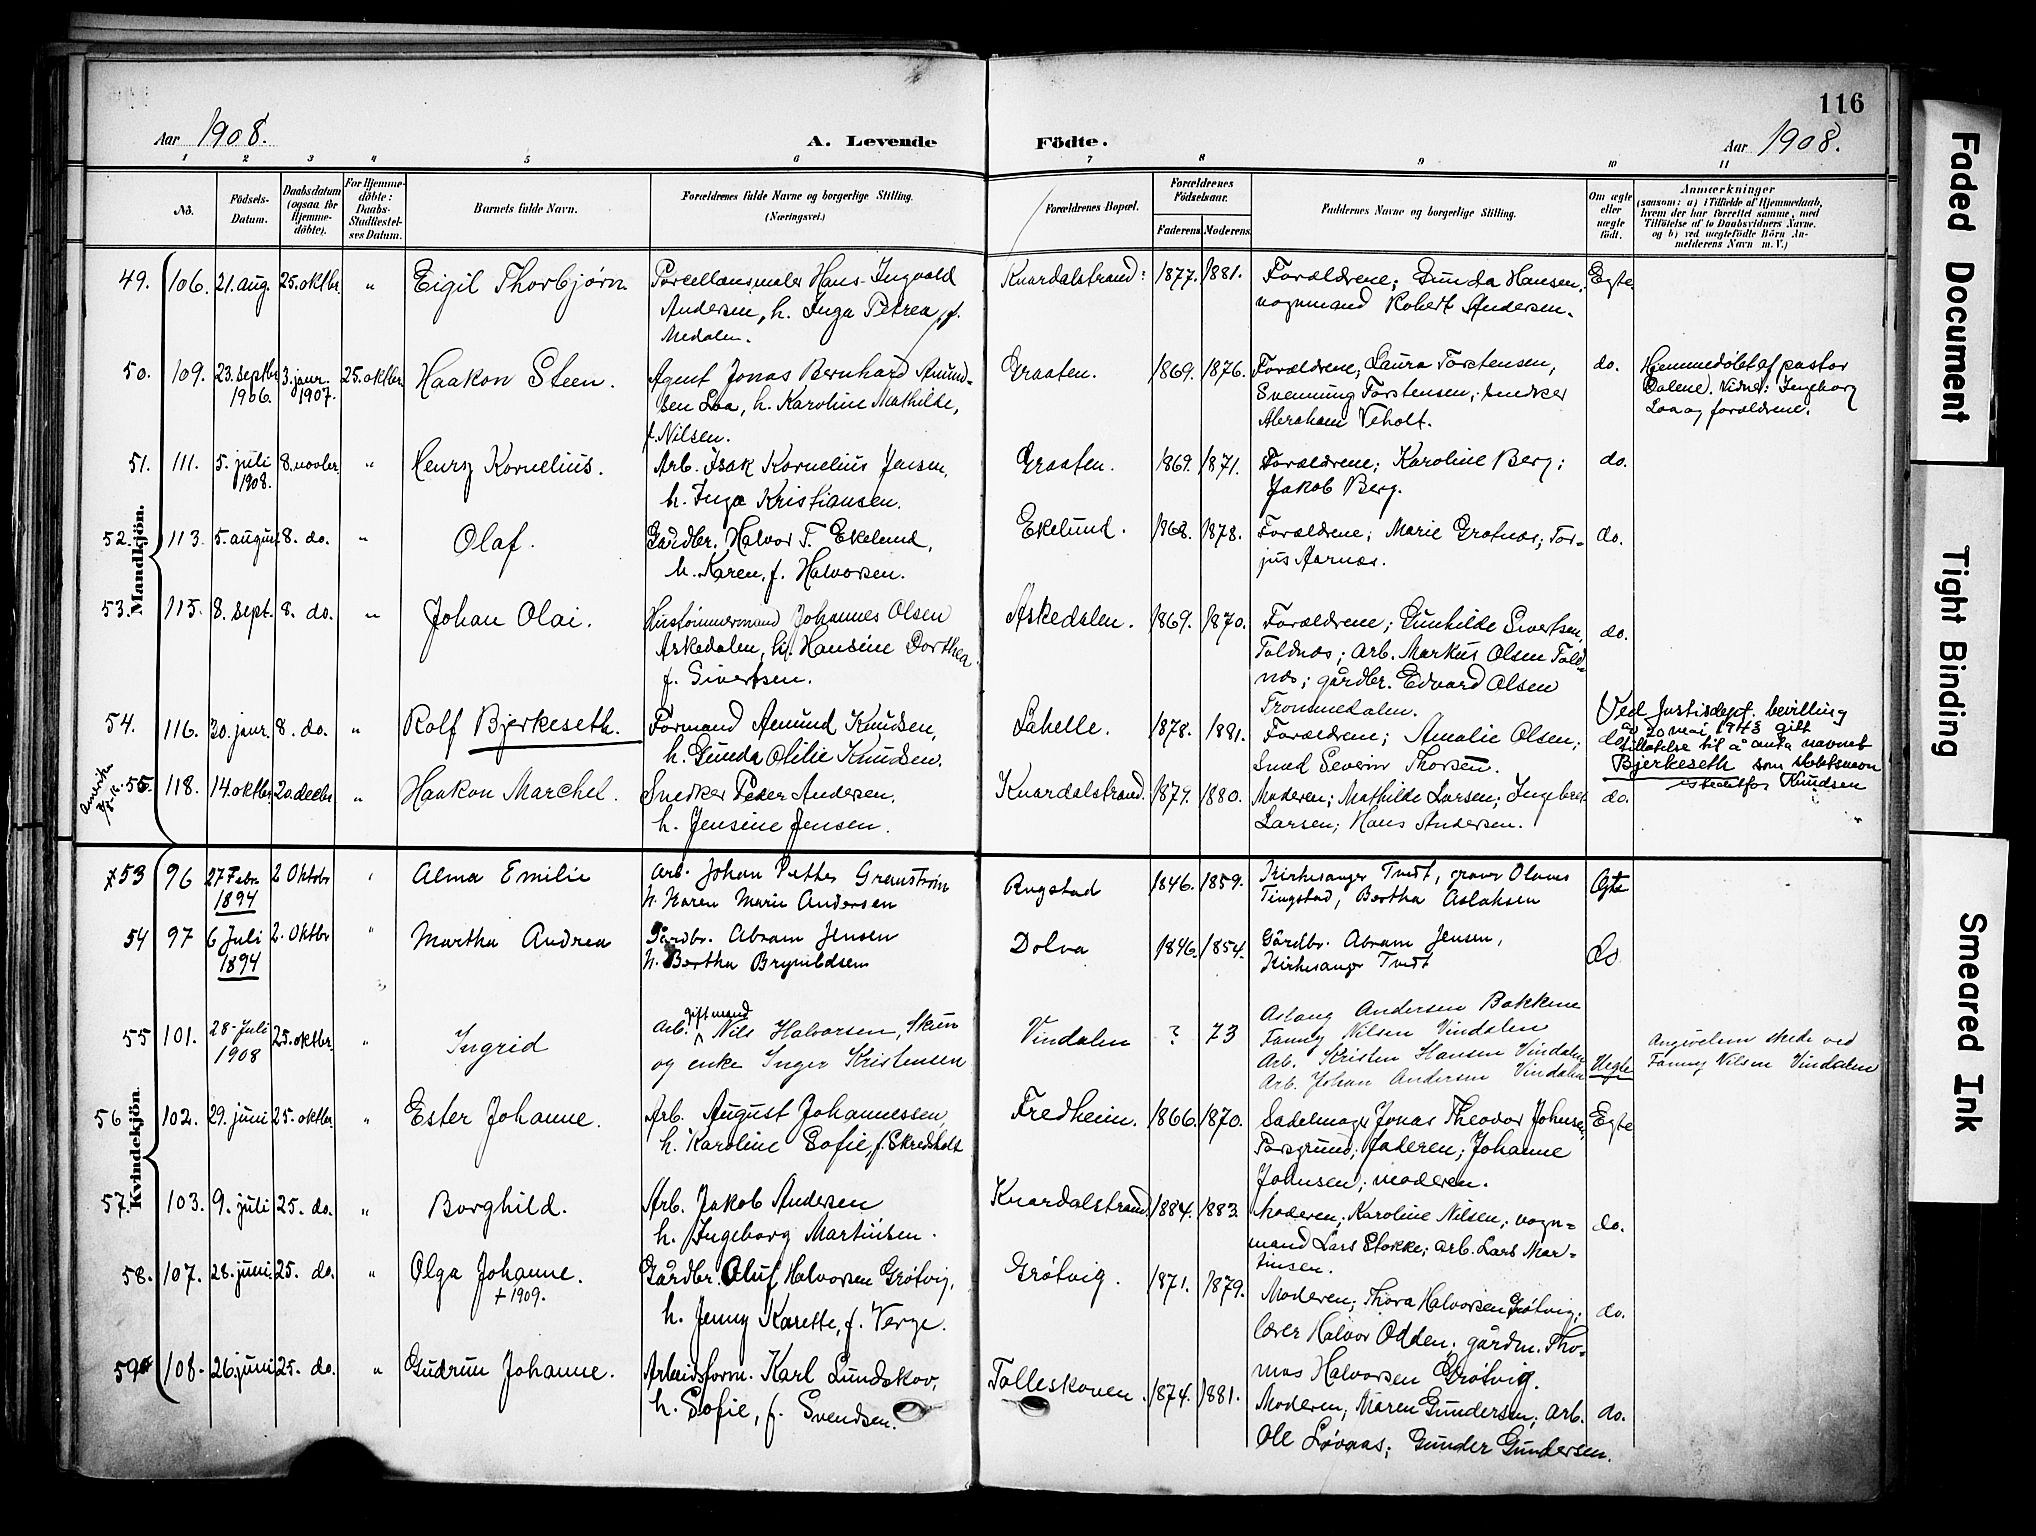 116
Aar 1908. A. Levende Födte. Aar 1908.
1 2 3 4 5 6 7 8 9 10 11
No. Födsels-Datum. Daabsdatum (ogsaa for Hjemme-döbte). For Hjemme-döbte: Daabs-Stadfæstel-ses Datum. Barnets fulde Navn. Forældrenes fulde Navne og borgerlige Stilling. (Næringsvei.) Forældrenes Bopæl. Forældrenes Födselsaar. Faderens Moderens Faddernes Navne og borgerlige Stilling. Om ægte eller uægte födt. Anmærkninger (saasom: a) i Tilfælde af Hjemmedaab, hvem der har forrettet samme, med Tilföielse af to Daabsvidners Navne. og b) ved uægtefödte Börn An-melderens Navn m. V.)
Mandkjön.
49. 106. 21. aug. 25. oktbr. " Eigil Thorbjørn Porcellænsmaler Hans Ingvald Knardalstrand: 1877. 1881. Forældrene; Gunda Hansen, Egte.
Andersen, h. Inga Petrea, f. vognmand Robert Andersen.
Medalen.
50. 109. 23. septbr. 3. janr. 25. oktbr. Haakon Steen. Agent Jonas Bernhard Amund- Graaten. 1869. 1876. Forældrene; Laura Torstensen, do. Hjemmedøbt af pastor
1906. 1907. sen Laa, h. Karoline Mathilde, Svenning Torstensen, snedker Dalene. Vidner: Ingeborg
f. Nilsen. Abraham Veholt. Laa og forældrene.
51. 111. 5. juli 8. novbr. " Henry Kornelius. Arb. Isak Kornelius Jensen, Graaten. 1869. 1871. Forældrene; Karoline Berg; do.
1908. h. Inga Kristiansen. Jakob Berg.
52. 113. 5. august 8. do. " Olaf. Gårdbr. Halvor T. Ekelund, Ekelund. 1868. 1878. Forældrene; Marie Grotnæs; Tor- do.
h. Karen, f. Halvorsen. jus Aarnæs.
53. 115. 8. sept. 8. do. " Johan Olai. Hustømmermand Johannes Olsen Askedalen. 1869. 1870. Forældrene; Gunhilde Sivertsen, do.
Askedalen, h. Hansine Dorthea Foldnæs; arb. Markus Olsen Fold-
f. Sivertsen. næs; gårdbr. Edvard Olsen
Trommedalen.
54. 116. 30. janr. 8. do. " Rolf Bjerkeseth. Formand Amund Knudsen, Lahelle. 1878. 1881. Forældrene; Amalie Olsen; do. Ved Justisdept. bevilling
h. Gunda Otilie Knudsen. Smed Severin Thorsen. av 20 mai 1943 gitt
tillatelse til å anta navnet
Bjerkeseth som slektsnavn
istedetfor Knudsen
Amerika
55. 118. 14. oktbr. 20. decbr. " Haakon Marchel. Snedker Peder Andersen, Knardalstrand. 1877. 1880. Moderen; Mathilde Larsen; Ingebret do.
h. Jensine Jensen. Larsen; Hans Andersen.
Kvindekjön.
x53 96 27 Febr. 2 Oktobr " Alma Emilie Arb. Johan Petter Grenström Rugstad 1846. 1859. Kirkesanger Tvedt, graver Olaves Ægte
1894 h. Karen Marie Andersen Tingstad, Bertha Aslaksen
54 97 6 Juli 2. Oktbr " Martha Andrea Gårdbr. Abram Jensen Dolva 1846. 1854. Gårdbr. Abram Jensen, do
1894 h. Bertha Brynildsen Kirkesanger Tvedt
55 101. 28. Juli 25. oktbr. " Ingrid Arb. giftmand Nils Halvorsen, Skien Vindalen ? 73 Aslaug Andersen Bakkene
1908 og enke Inger Kristensen Fanny Nilsen Vindalen Angivelsen skede ved
Arb. Kristen Hansen Vindalen Uegte Fanny Nilsen Vindalen
Arb. Johan Andersen Vindalen
56 102. 29. juni 25. oktbr. " Ester Johanne. Arb. August Johannessen, Fredheim. 1866. 1870. Sadelmager Jonas Theodor Johnsen, Egte
h. Karoline Sofie, f. Skredholt Porsgrund; faderen; Johanne
Johnsen; moderen.
57. 103. 9. juli 25. do. " Borghild. Arb. Jakob Andersen Knardalstrand 1884. 1883. Moderen; Karoline Nilsen; vogn- do.
h. Ingeborg Martinsen. mand Lars Stokke; arb. Lars Mar-
tinsen.
58. 107. 28. juni. 25. do. " Olga Johanne. Gårdbr. Oluf Halvorsen Grøtvig, Grøtvig. 1871. 1879. Moderen; Thora Halvorsen Grøtvig; do.
+ 1909. h. Jenny Karette, f. Verge. lærer Halvor Odden; gårdm. Tho-
mas Halvorsen Grøtvig.
59 108. 26. juni 25. do. " Gudrun Johanne. Arbeidsform. Karl Lundskov, Tolleskoven. 1874. 1881. Moderen; Maren Gundersen; arb. do.
h. Sofie, f. Svendsen. Ole Løvaas; Gunder Gundersen.
Faded Document
Tight Binding
Smeared Ink